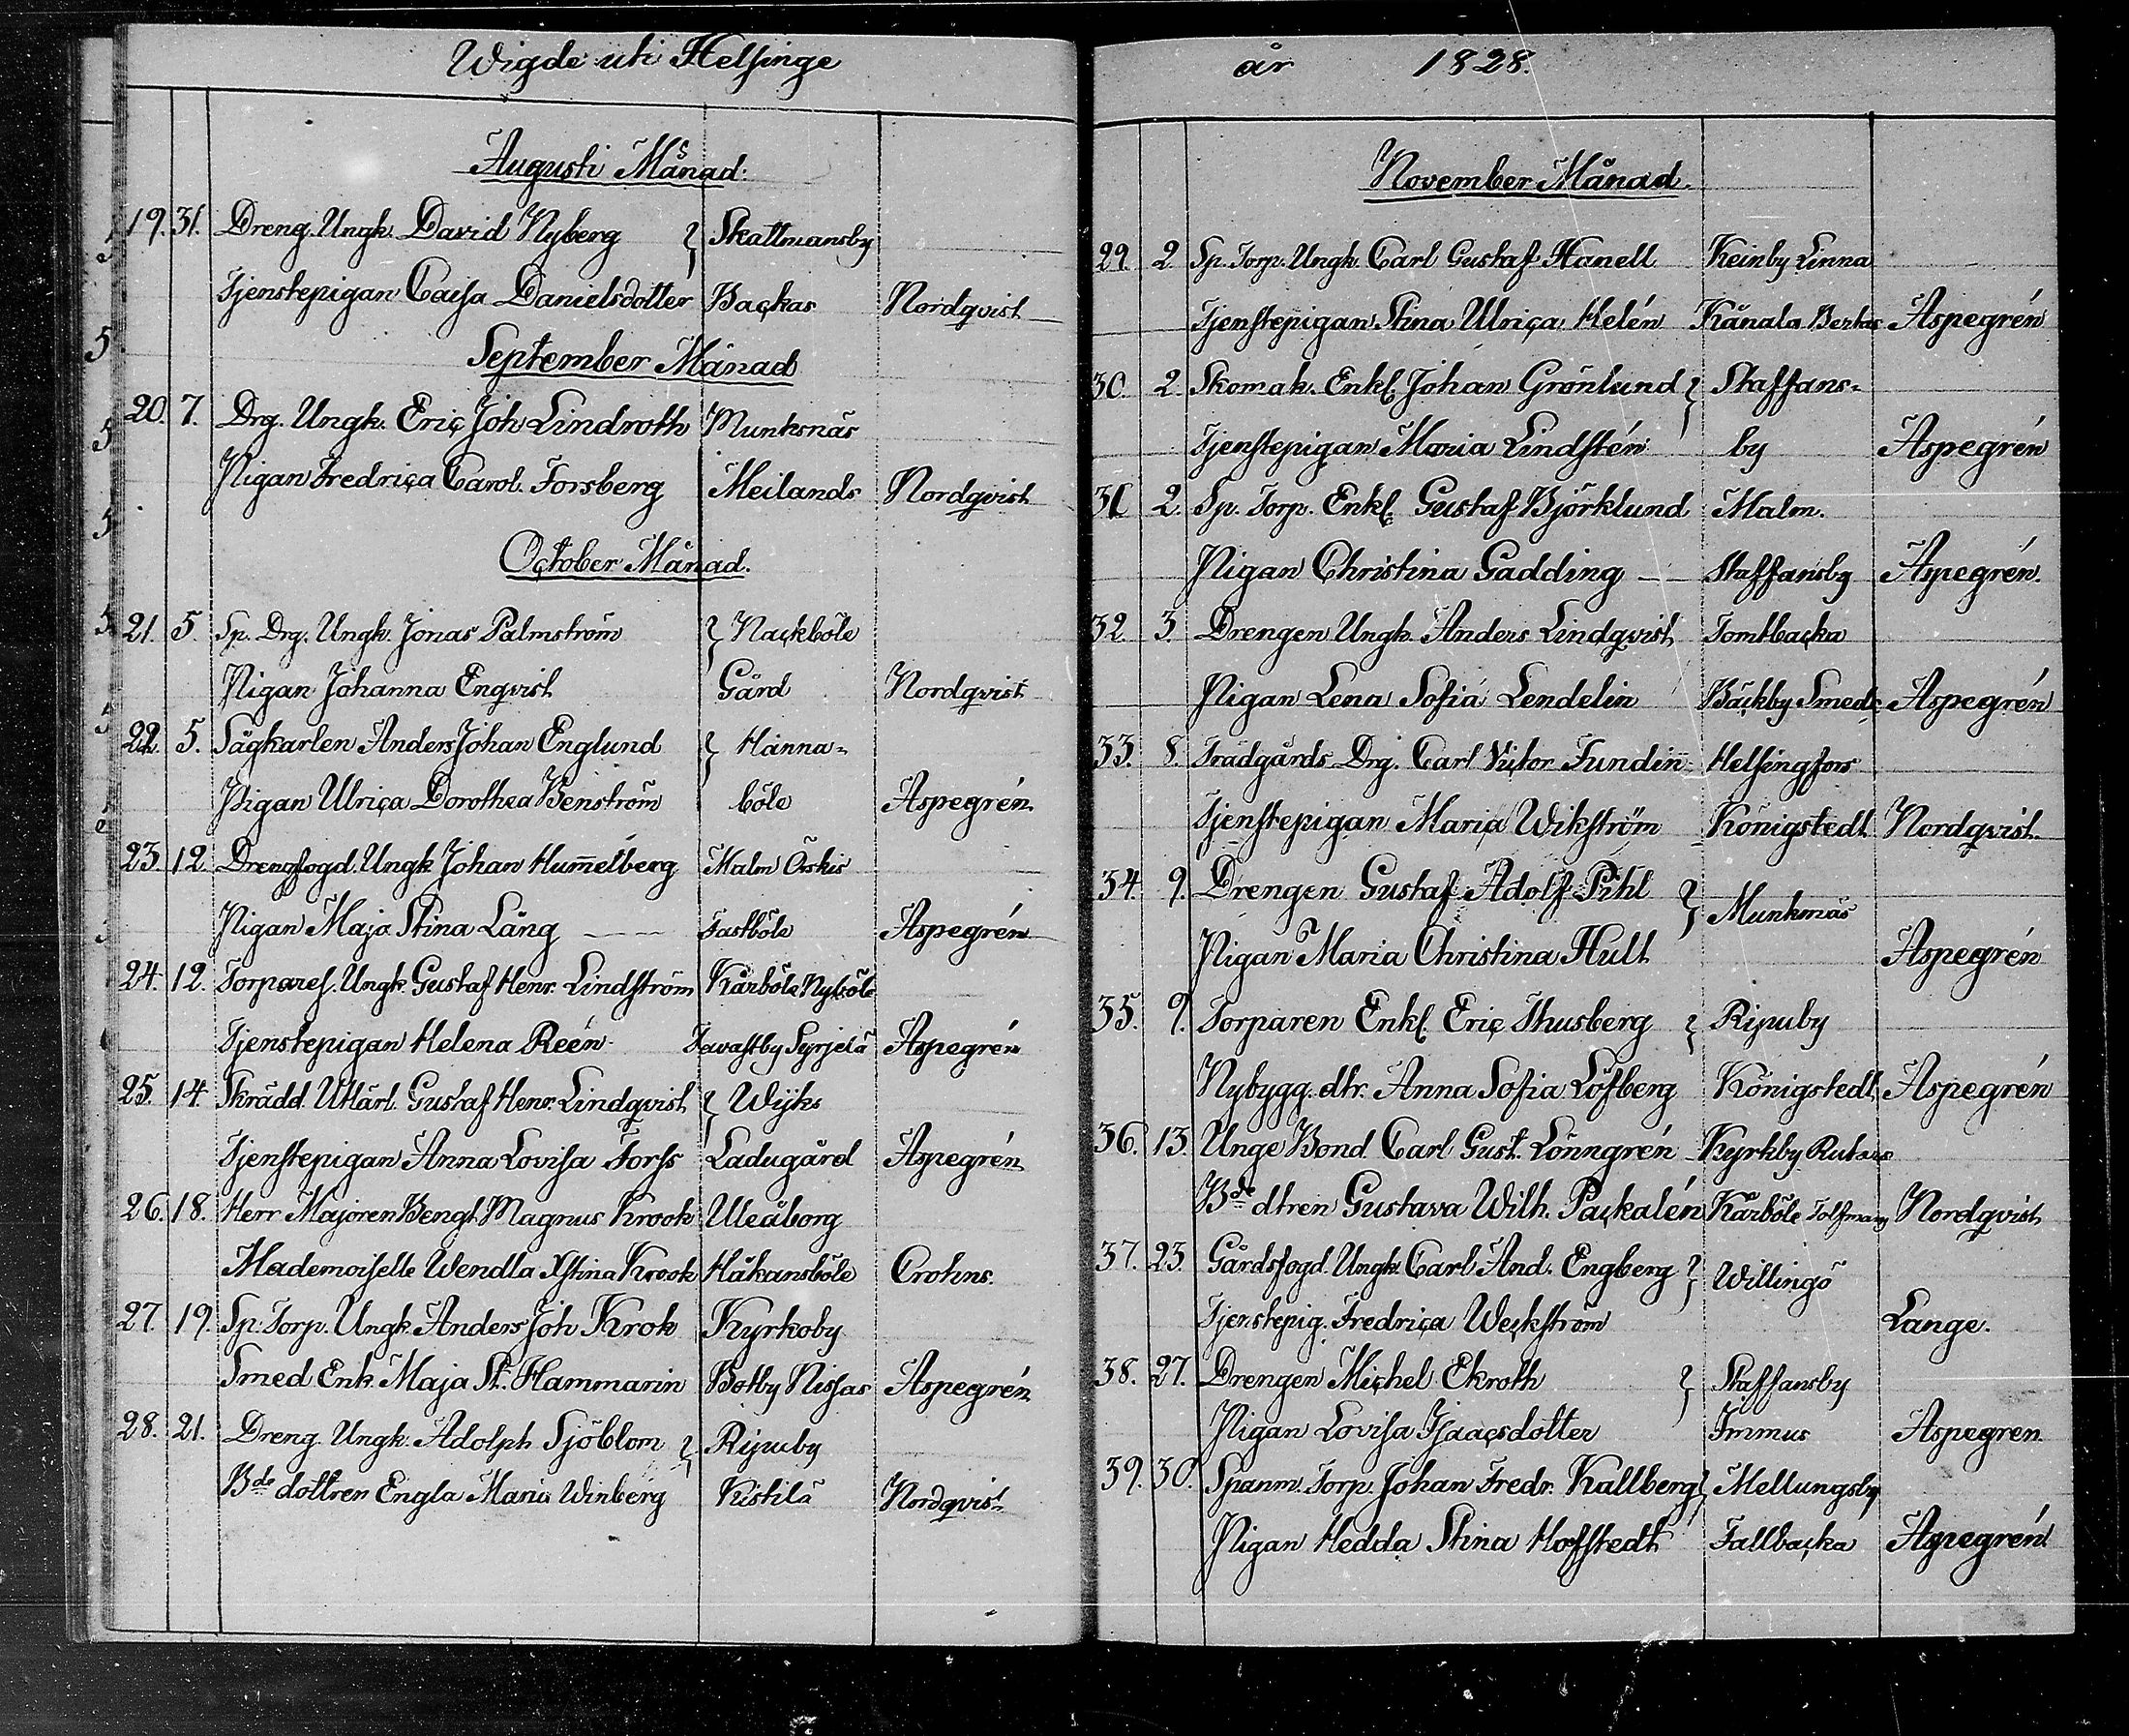 Wigde uti Helsinge
Augusti Månad.
19. 31. Dreng. Ungk. David Nyberg } Skattmansby
Tjenstepigan Caisa Danielsdotter Backas Nordqvist
September Månad
20. 7. Drg. Ungk. Eric Joh Lindroth Munksnäs
Pigan Fredrica Carol. Forsberg Meilands Nordqvist
October Månad.
21. 5. Sp. Drg. Ungk. Jonas Palmström } Nackböle
Pigan Johanna Enqvist Gård Nordqvist
22. 5. Sågkarlen Anders Johan Englund } Hanna-
Pigan Ulrica Dorothea Benström böle Aspegrén
23. 12. Drengfogd. Ungk Johan Hum̅elberg Malm Orskis
Pigan Maja Stina Lång Fastböle Aspegrén
24. 12. Torpares. Ungk. Gustaf Henr. Lindström Kårböle Nyböle
Tjenstepigan Helena Reén Tavastby Syrjelä Aspegrén
25. 14. Skrädd. Utlärl. Gustaf Henr. Lindqvist } Wijks
Tjenstepigan Anna Lovisa Forss Ladugård Aspegrén
26. 18. Herr Majoren Bengt Magnus Krook Uleåborg
Mademoiselle Wendla Xstina Krook Håkansböle Crohns.
27. 19. Sp. Torp. Ungk. Anders Joh Krok Kyrkoby
Smed Enk. Maja St. Hammarin Botby Nissas Aspegrén
28. 21. Dreng. Ungk. Adolph Sjöblom } Ripuby
Bde dottren Engla Maria Winberg Kistilä Nordqvist
år 1828.
November Månad.
29. 2. Sp. Torp. Ungk. Carl Gustaf Hanell Keinby Linna
Tjenstepigan Stina Ulrica Helén Kånala Bertas Aspegrén
30. 2. Skomak. Enkl. Johan Grönlund } Staffans-
Tjenstepigan Maria Lindstén by Aspegrén
31. 2. Sp. Torp. Enkl. Gustaf Björklund Malm.
Pigan Christina Gadding Staffansby Aspegrén.
32. 3. Drengen Ungk. Anders Lindqvist Tomtbacka
Pigan Lena Sofia Lendelin Bäckby Smeds Aspegrén
33. 8. Trädgårds Drg. Carl Victor Fundin Helsingfors
Tjenstepigan Maria Wikström Königstedt Nordqvist
34. 9. Drengen Gustaf Adolf Pihl } Munksnäs
Pigan Maria Christina Hult Aspegrén
35. 9. Torparen Enkl. Eric Thusberg } Ripuby
Nybygg. dtr. Anna Sofia Löfberg Königstedt Aspegrén
36. 13. Unge Bond. Carl Gust. Lönngrén Kyrkby Rutars
Bde dtren Gustava Wilh. Packalén Kårböle Tolfmans Nordqvist
37. 23. Gårdsfogd. Ungk. Carl And. Engberg } Willingö
Tjenstepig. Fredrica Weckström Lange.
38. 27. Drengen Michel Ekroth } Staffansby
Pigan Lovisa Isaacsdotter Immus Aspegren
39. 30. Spanm. Torp. Johan Fredr. Kallberg } Mellungsby
Pigan Hedda Stina Hoffstedt Fallbacka Aspegrén